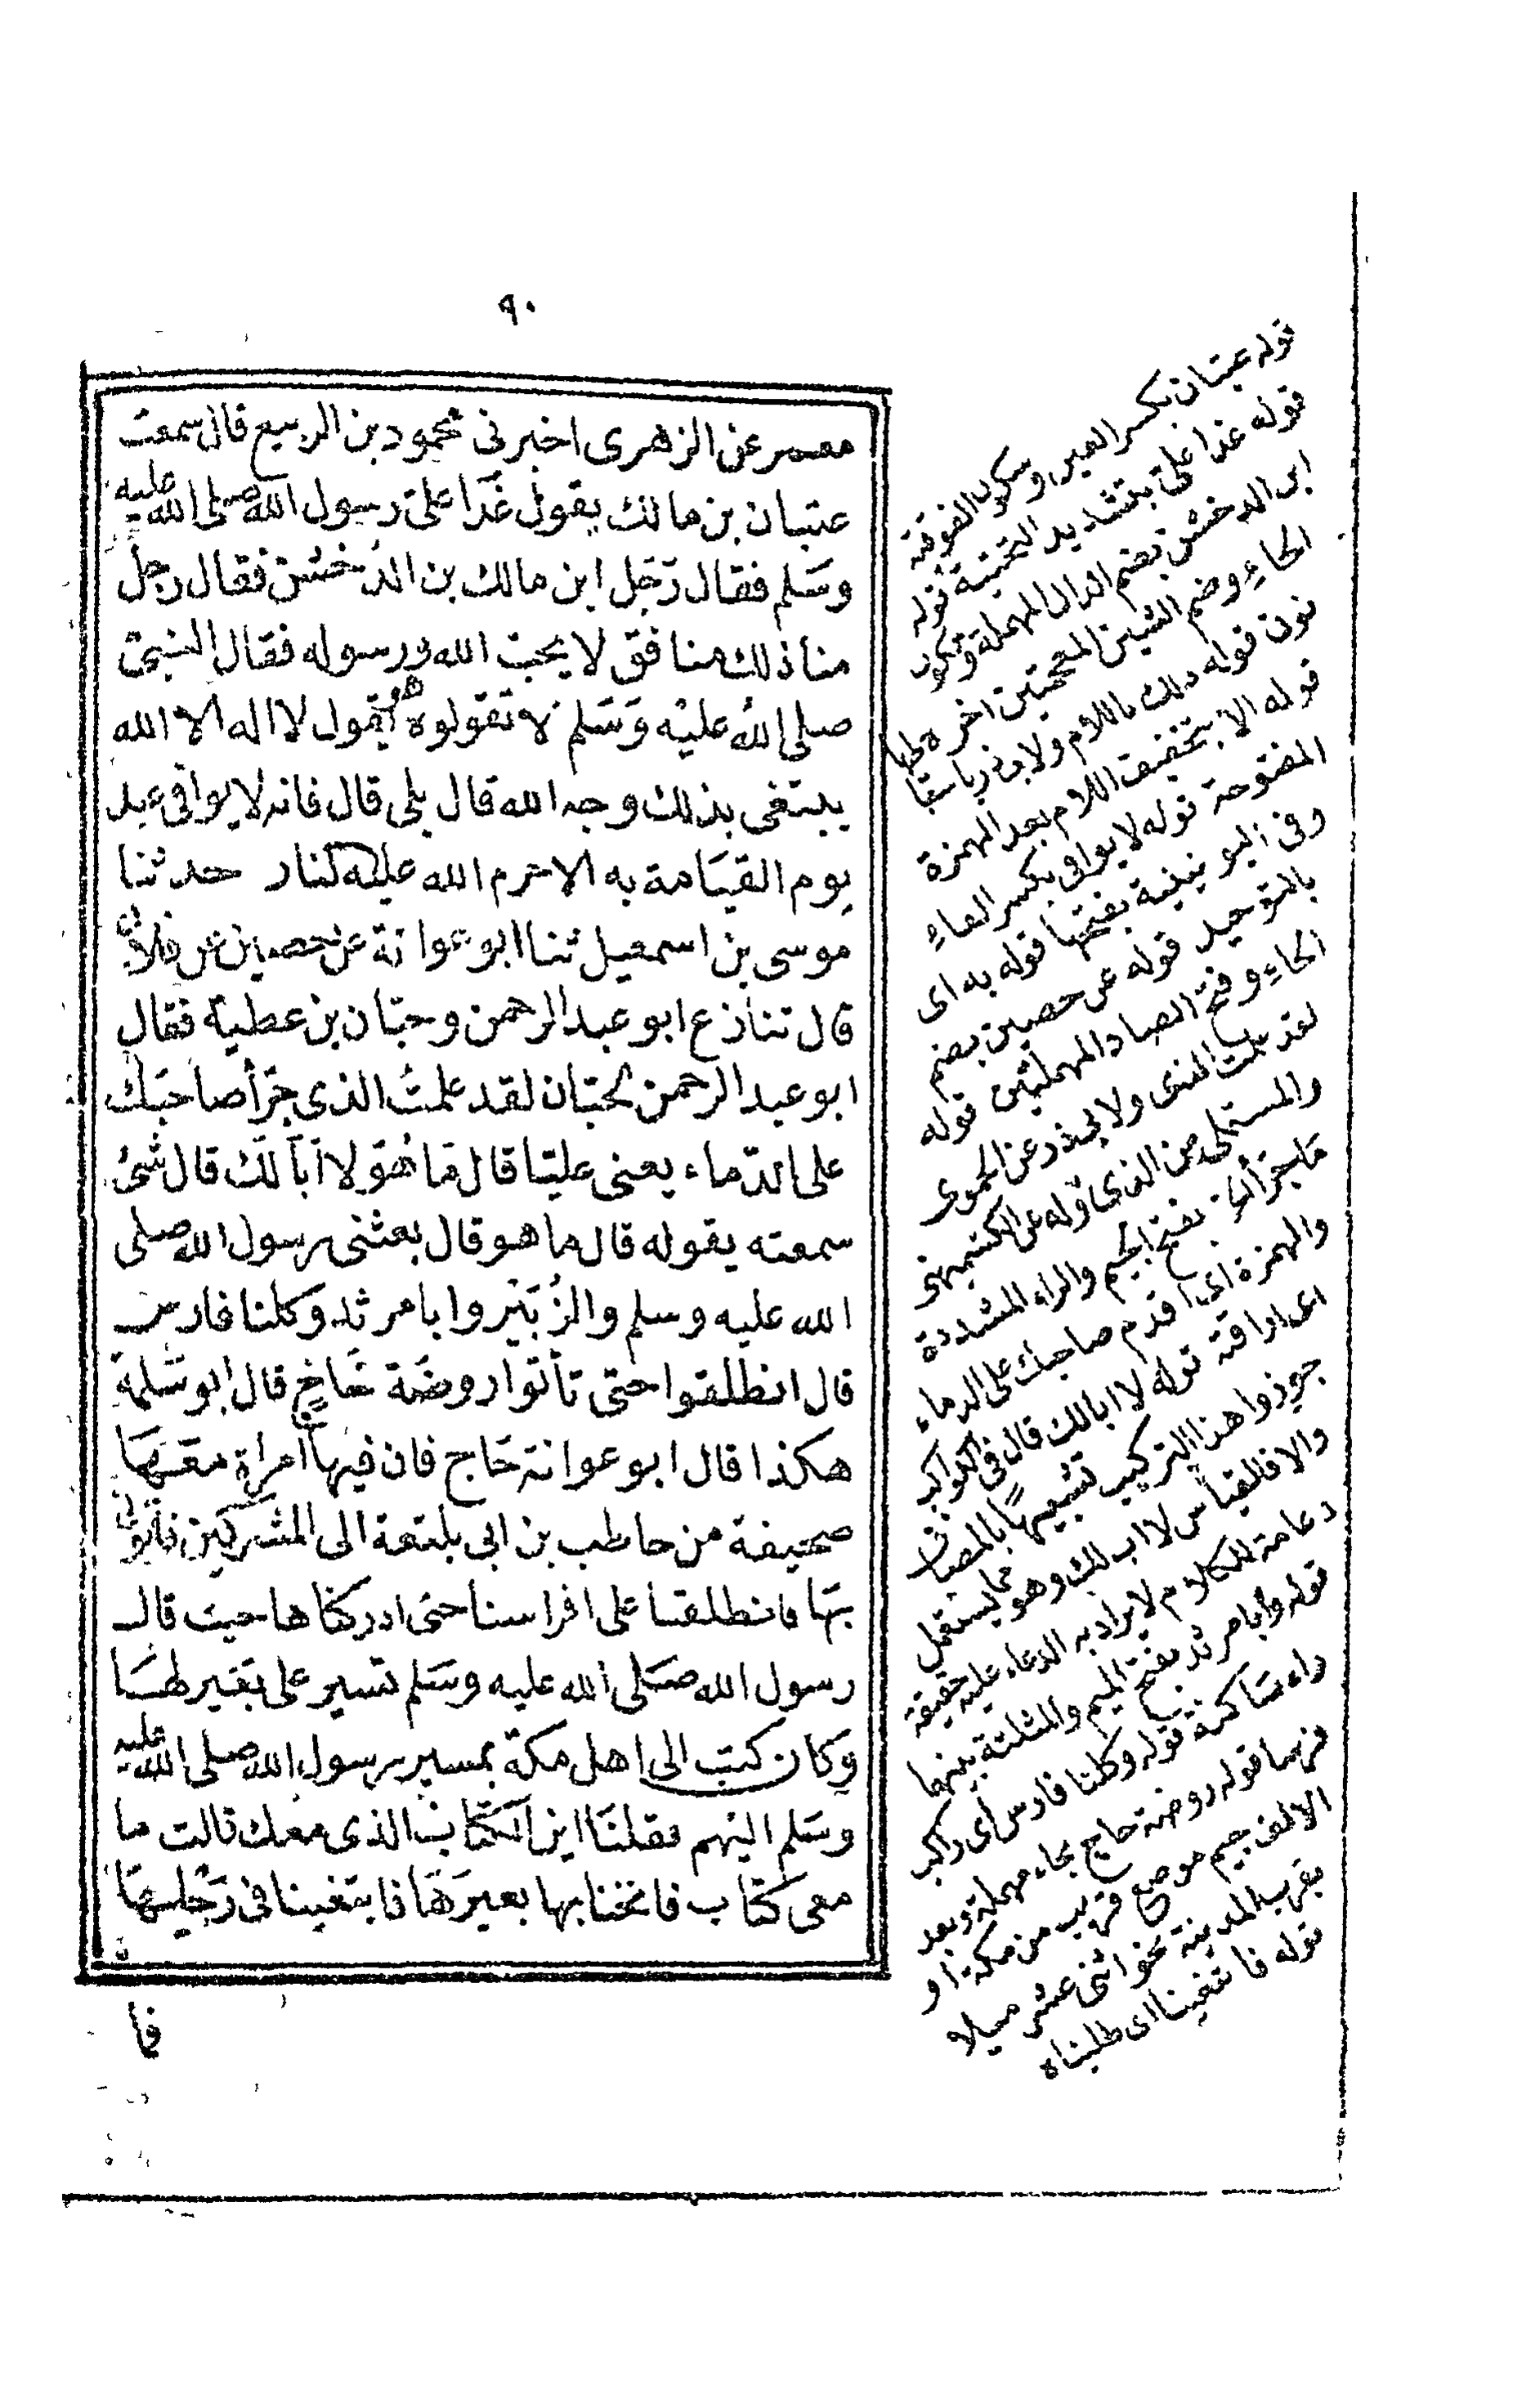 ٩٠
معمر عن الزهرى اخبرنى محمود بن الربيع قال سمعت
عتبان بن مالك يقول غدا على رسول الله صلى الله عليه
وسلم فقال رجل اين مالك بن الدخشن فقال رجل
منا ذلك منافق لا يحب الله ورسوله فقال النبى
صلى الله عليه وسلم لا تقولوه يقول لا اله الا الله
يبتغى بذلك وجه الله قال بلى قال فانه لا يوافى عبد
يوم القيامة به الا حرم الله عليه النار حدثنا
موسى بن اسمعيل ثنا ابو عوانة عن حصين عن فلان
قال تنازع ابو عبد الرحمن وحبان بن عطية فقال
ابو عبد الرحمن لحبان لقد علمت الذى جرأ صاحبك
على الدماء يعنى عليا قال ما هو لا ابا لك قال شئ
سمعته يقوله قال ما هو قال بعثنى رسول الله صلى
الله عليه وسلم والزبير وابا مرثد وكلنا فارس
قال انطلقوا حتى تأتوا روضة خاخ قال ابو سلمة
هكذا قال ابو عوانة حاج فان فيها امراة معها
صحيفة من حاطب بن ابى بلتعة الى المشركين فأتونى
بها فانطلقنا على افراسنا حتى ادركناها حيث قال
رسول الله صلى الله عليه وسلم تسير على بعير لها
وكان كتب الى اهل مكة بمسير رسول الله صلى الله عليه
وسلم اليهم فقلنا اين الكتاب الذى معك قالت ما
معى كتاب فانخنا بها بعيرها فابتغينا فى رحلها
فا
قوله عتبان بكسر العين وسكون الفوقية
قوله غدا على بتشديد التحتية قوله
ابن الدخشن بضم الدال المهملة وسكون
الخاء وضم الشين المعجمتين اخره
نون قوله ذلك باللام ولابى ذر باسقاطها
قوله الا بتخفيف اللام بعد الهمزة
المفتوحة قوله لا يوافى بكسر الفاء
وفى اليونينية بفتحها قوله به اى
بالتوحيد قوله عن حصين بضم
الحاء وفتح الصاد المهملتين قوله
لقد علمت الذى ولابى ذر عن الحموى
والمستملى من الذى قوله عن الكشميهنى
ما جرأ بفتح الجيم والراء المشددة
والهمزة اى اقدم صاحبك على الدماء
اى اراقة قوله لا ابا لك قال فى الكواكب
جوزوا هذا التركيب تشبيها بالمضاف
والا فالقياس لا اب لك وهو مما يستعمل
دعامة للكلام لا يراد به الدعاء عليه حقيقة
قوله وابا مرثد بفتح الميم والمثلثة بينهما
راء ساكنة قوله وكلنا فارس اى راكب
فرسا قوله روضة حاج بحاء مهملة وبعد
الالف جيم موضع قريب من مكة او
بقرب المدينة نحو اثنى عشر ميلا
قوله فابتغينا اى طلبناه